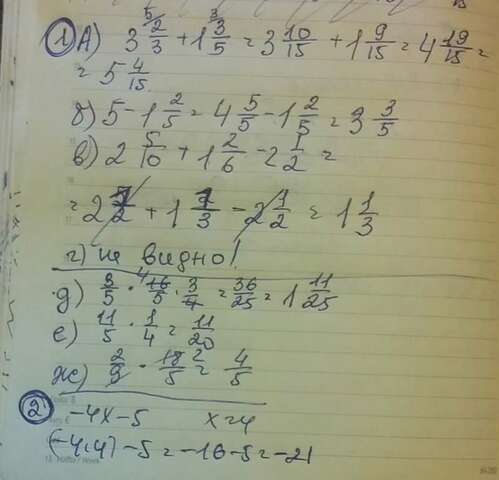 1) А) 3 2/3 + 1 3/5 = 3 10/15 + 1 9/15 = 4 19/15 =
= 5 4/15
б) 5 - 1 2/5 = 4 5/5 - 1 2/5 = 3 3/5
в) 2 5/10 + 1 2/6 - 2 1/2 =
= 2 1/2 + 1 1/3 - 2 1/2 = 1 1/3
г) не видно!
д) 3/5 · 16/5 · 3/4 = 36/25 = 1 11/25
е) 11/5 · 1/4 = 11/20
ж) 2/9 · 18/5 = 4/5
2) -4x - 5 x = 4
(-4·4) - 5 = -16 - 5 = -21